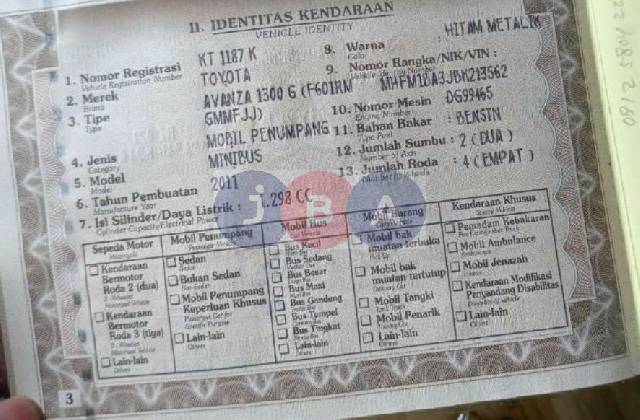 11. IDENTITAS KENDARAAN
VEHICLE IDENTITY
1. Nomor Registrasi KT 1187 K
Vehicle Registration Number
2. Merek TOYOTA
Brand
3. Tipe AVANZA 1300 G (F601RM
Type
GMMFJJ)
4. Jenis MOBIL PENUMPANG
Category
5. Model MINIBUS
Model
6. Tahun Pembuatan 2011
Manufacture Year
7. Isi Silinder/Daya Listrik : 1.298 CC
Cylinder Capacity/Electrical Power
8. Warna HITAM METALIK
Color
9. Nomor Rangka/NIK/VIN :
MHFM1BA3JBK213562
10. Nomor Mesin DG99465
Engine Number
11. Bahan Bakar : BENSIN
12. Jumlah Sumbu : 2 (DUA)
Number of Axis
13. Jumlah Roda : 4 (EMPAT)
Number of Wheels
Sepeda Motor
Kendaraan Bermotor
Roda 2 (dua)
Kendaraan Bermotor
Roda 3 (tiga)
Lain-lain
Mobil Penumpang
Sedan
Bukan Sedan
Mobil Penumpang
Keperluan Khusus
Lain-lain
Mobil Bus
Bus Kecil
Bus Sedang
Bus Besar
Bus Maxi
Bus Gandeng
Bus Tempel
Bus Tingkat
Lain-lain
Mobil Barang
Mobil bak
muatan terbuka
Mobil bak
muatan tertutup
Mobil Tangki
Mobil Penarik
Lain-lain
Kendaraan Khusus
Pemadam Kebakaran
Mobil Ambulance
Mobil Jenazah
Kendaraan Modifikasi
Penyandang Disabilitas
Lain-lain
3
JBA